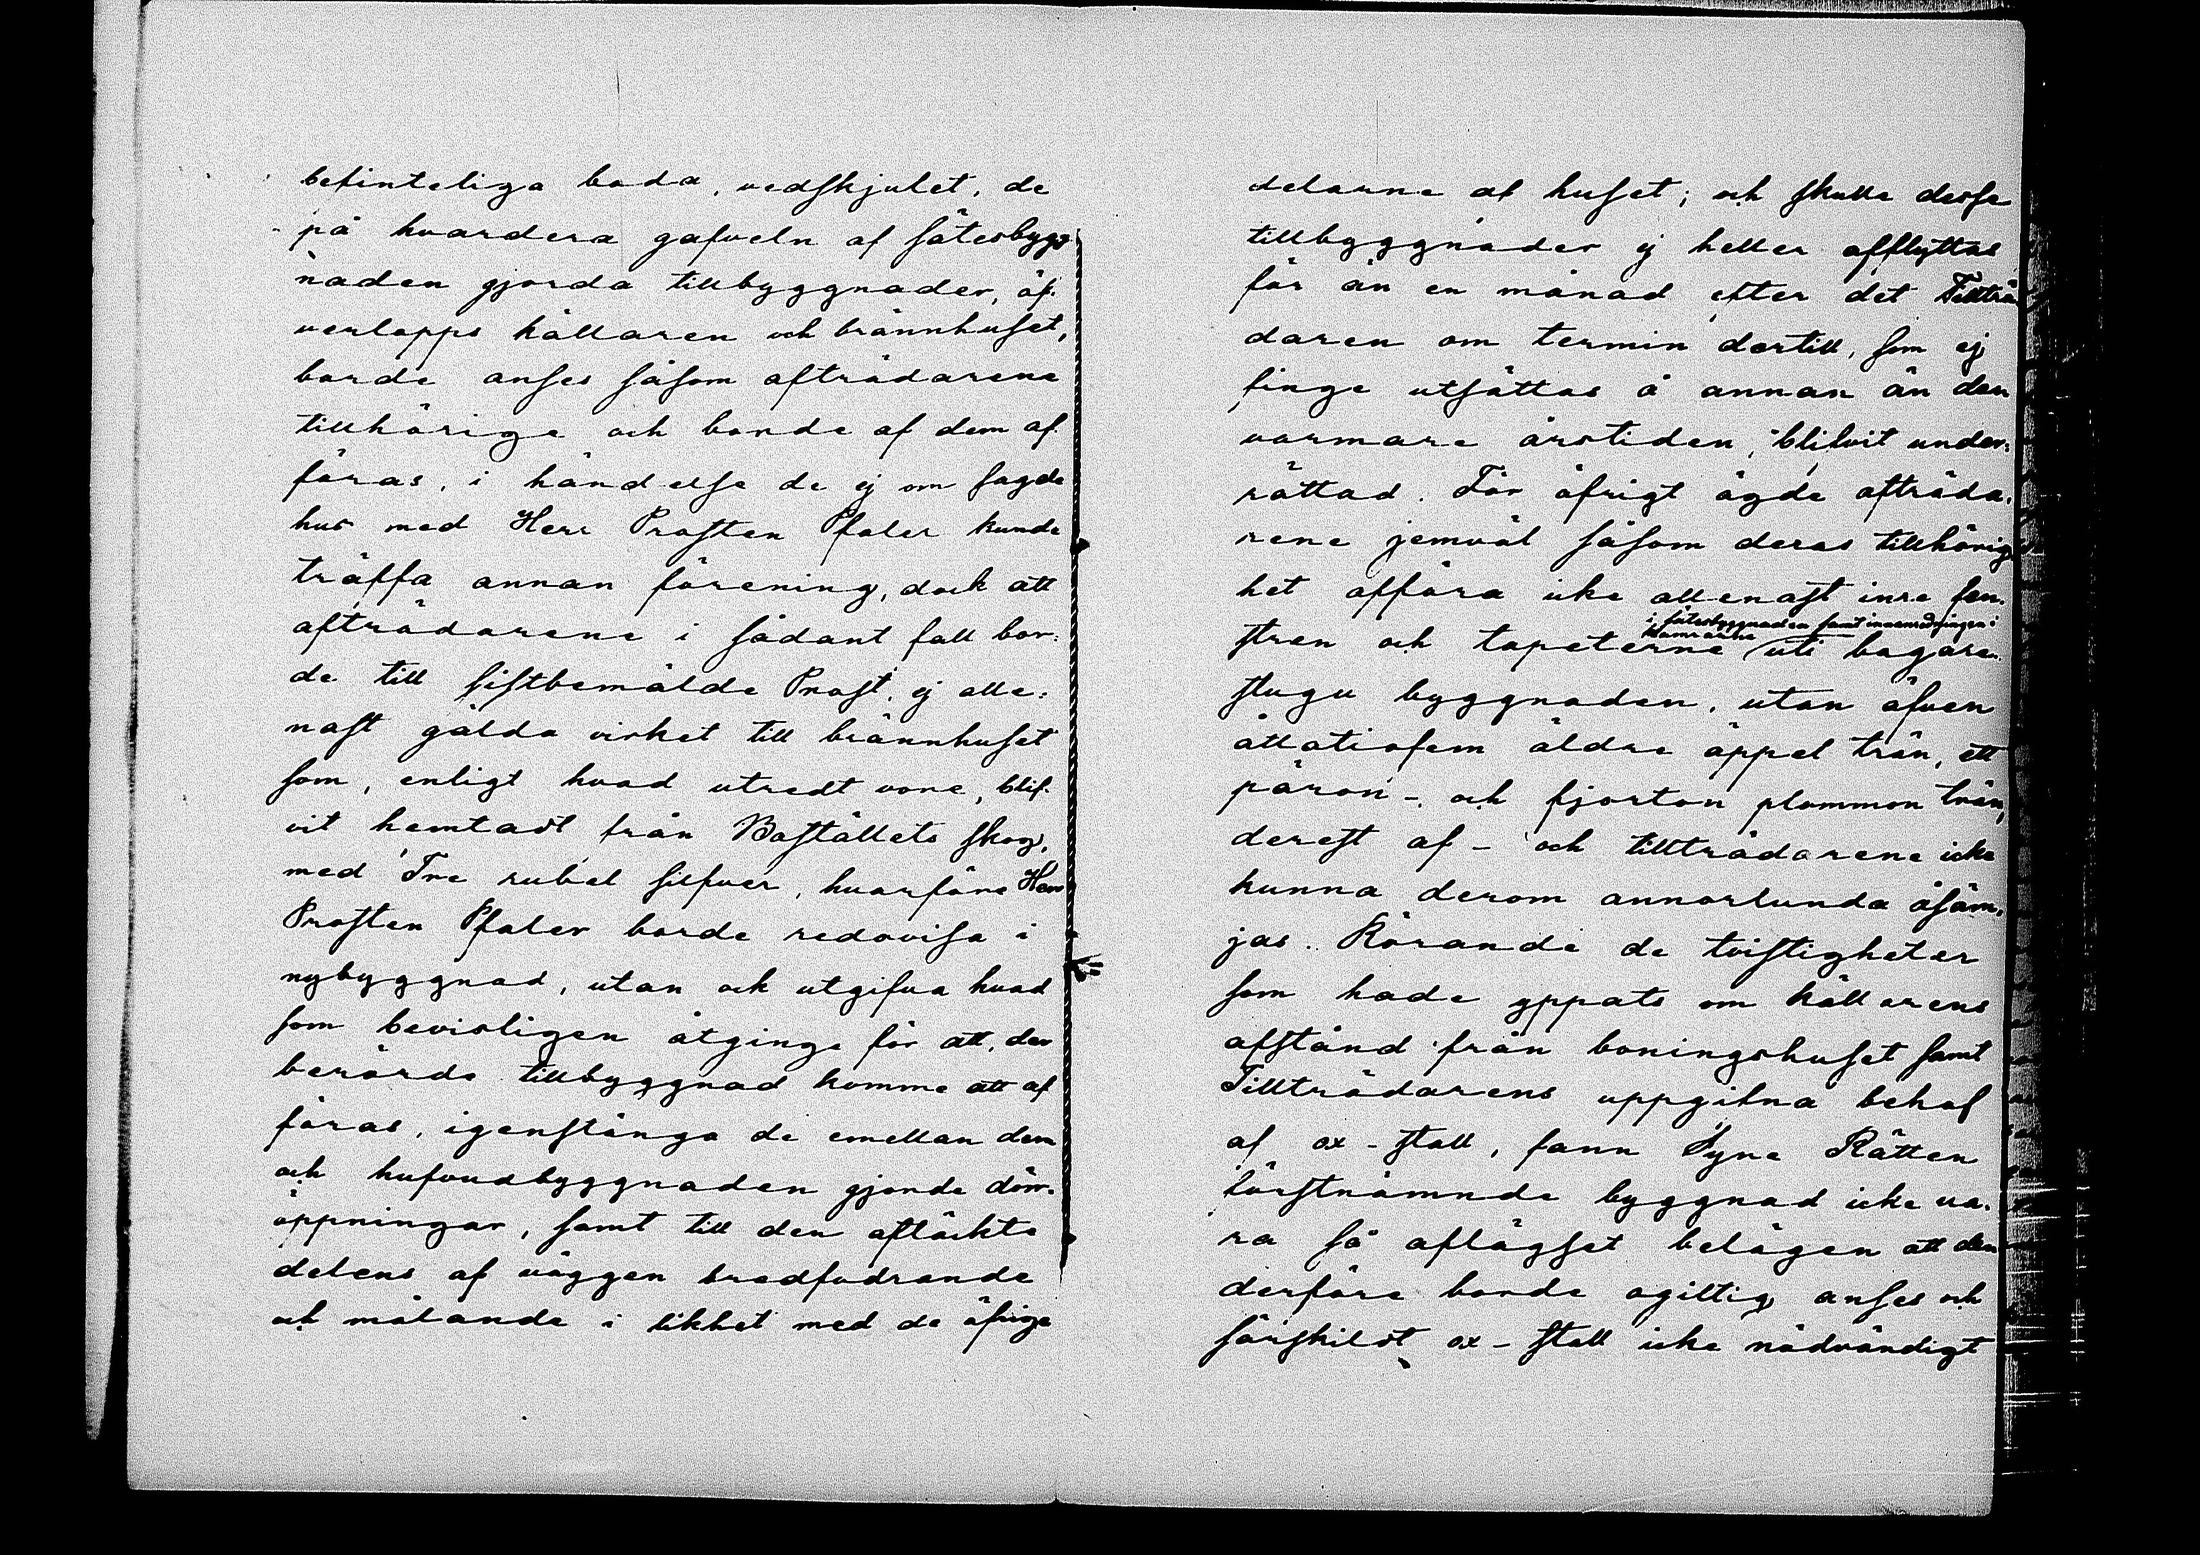 befinteliga boda, vedskjulet, de
på hvardera gafveln af sätesbygg
naden gjorda tillbyggnader, äf-
verlopps källaren och brännhuset,
borde anses såsom afträdarene
tillhörige och borde af dem af-
föras, i händelse de ej om sagde
hus med Herr Prosten Pfaler kunde
träffa annan förening, dock att
afträdarene i sådant fall bor-
de till sistbemälde Prost, ej alle-
nast gälda virket till brännhuset
som, enligt hvad utredt vore, blif-
vit hemtadt från Boställets skog,
med Tre rubel silfver, hvarföre Herr
Prosten Pfaler borde redovisa i
nybyggnad, utan ock utgifva hvad
som bevisligen åtginge för att, der
berörde tillbyggnad komme att af
föras, igenstänga de emellan dem
och hufvudbyggnaden gjorde dörr-
öppningar, samt till den aftäckte
delens af väggen brädfodrande
och målande i likhet med de öfrige
delarne af huset; och skulle desse
tillbyggnader ej heller afflyttas
för än en månad efter det Tillträ
daren om termin dertill, som ej
finge utsättas å annan än den
varmare årstiden, blifvit under-
rättad. För öfrigt ägde afträda-
rene jemväl såsom deras tillhörig
het afföra icke allenast inre fön-
i sätesbyggnaden samt innanredningen i
kamrarne
stren och tapeterne uti bagare-
stugu byggnaden, utan äfven
åttatiofem äldre äppel trän, ett
päron-, och fjorton plommon trän,
derest af- och tillträdarene icke
kunna derom annorlunda åsäm-
jas. Rörande de tvistigheter
som hade yppats om källarens
afstånd från boningshuset samt
Tillträdarens uppgifna behof
af ox-stall, fann Syne Rätten
förstnämnde byggnad icke va-
ra så aflägset belägen att den
derföre borde ogiltig anses och
särskildt ox-stall icke nödvändigt